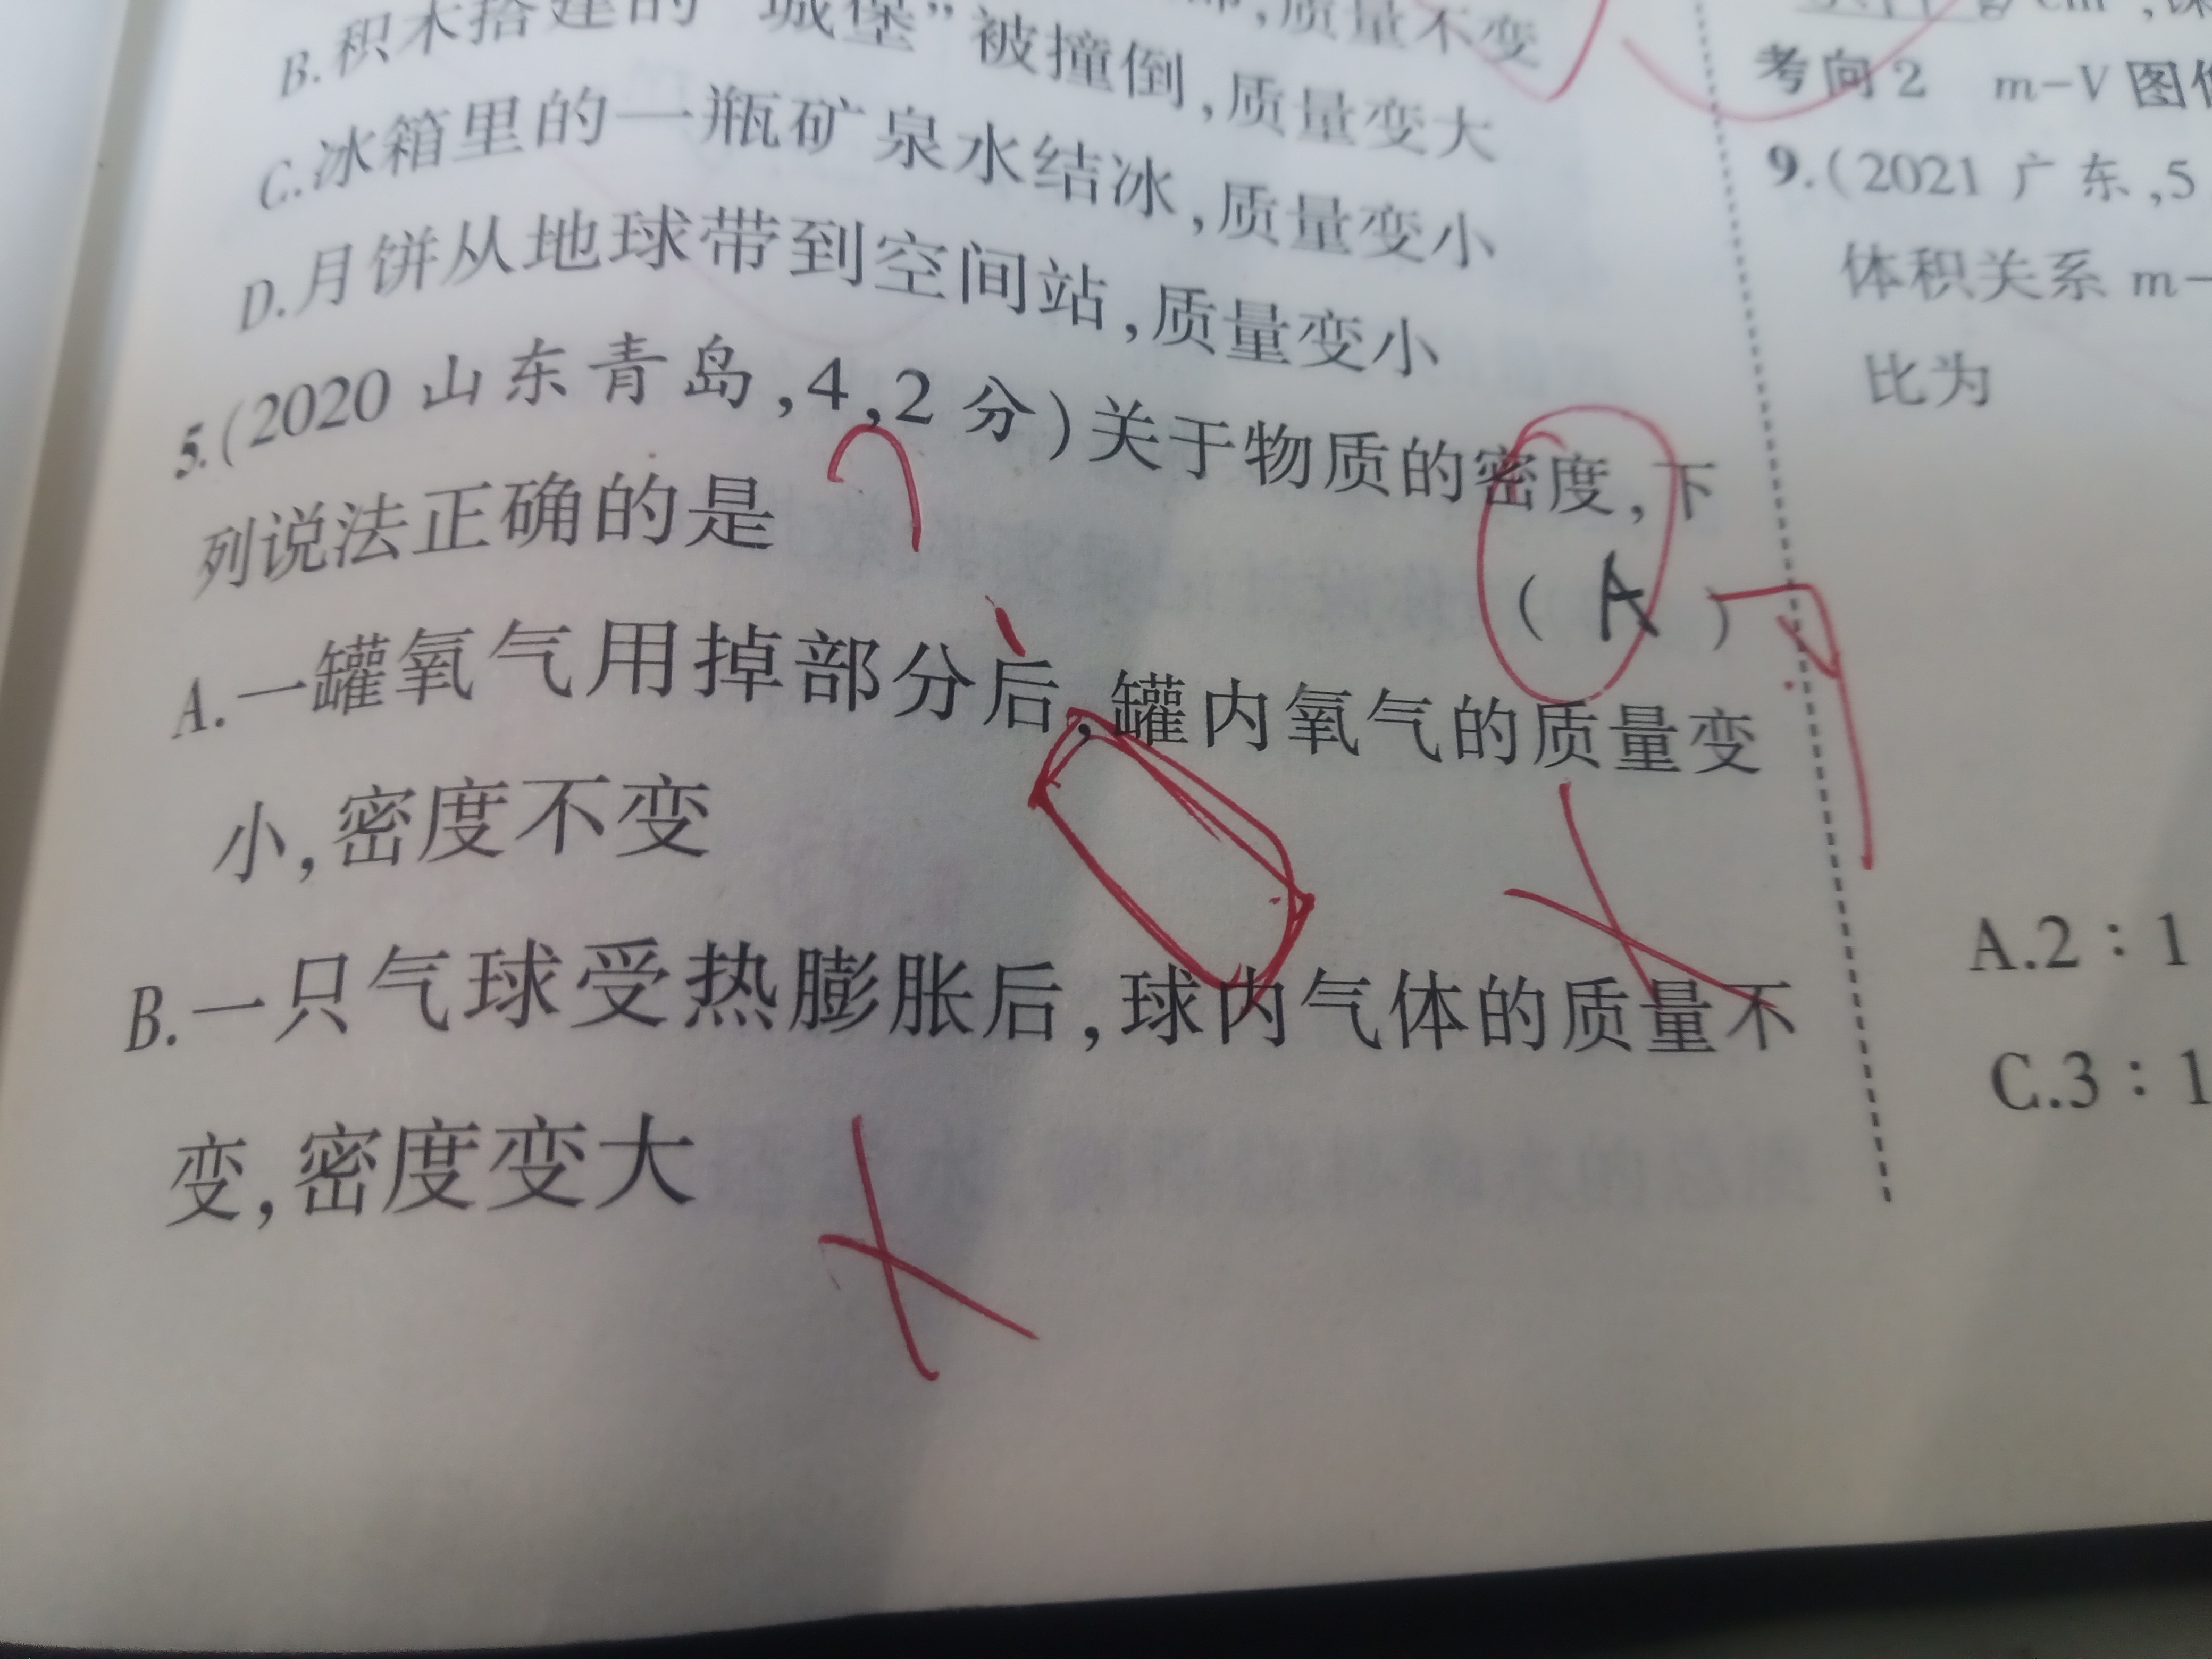 质量不变
B.积木搭建的“城堡”被撞倒,质量变大
C.冰箱里的一瓶矿泉水结冰,质量变小
D.月饼从地球带到空间站,质量变小
5.(2020 山东青岛,4,2 分)关于物质的密度,下
列说法正确的是 ( A )
A.一罐氧气用掉部分后,罐内氧气的质量变
小,密度不变
B.一只气球受热膨胀后,球内气体的质量不
变,密度变大
考向2 m-V 图
9.(2021 广东,5
体积关系 m-
比为
A.2∶1
C.3∶1